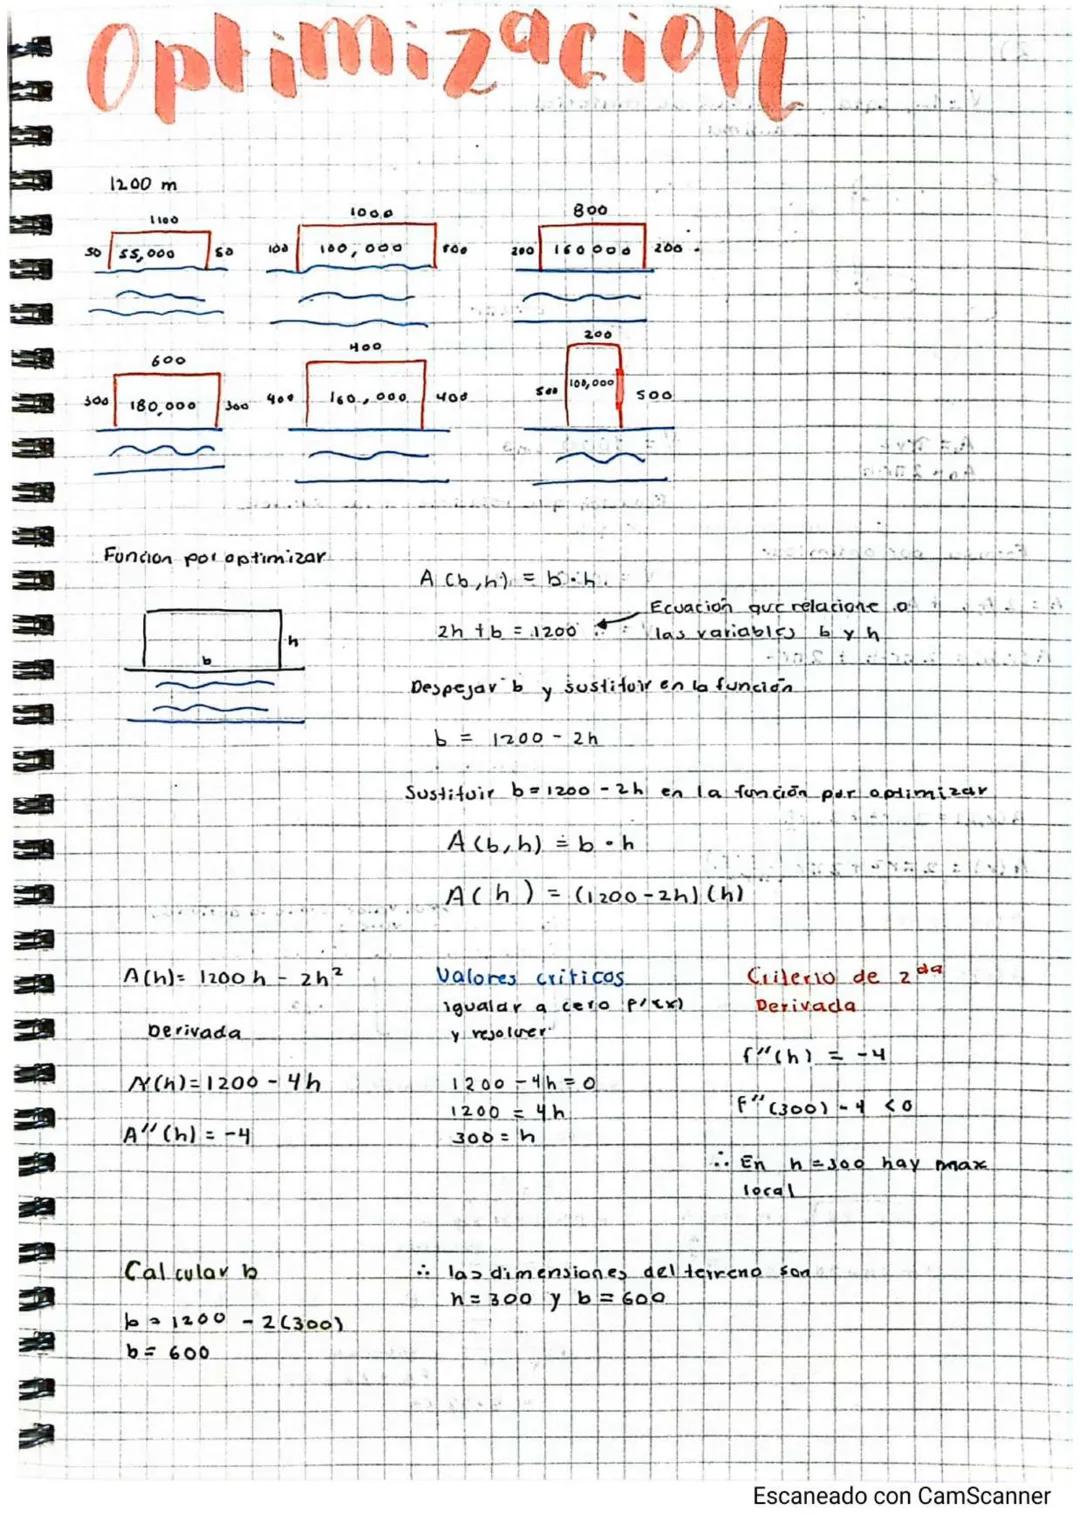 Optimizacion
1200 m
1100
50 55,000 50
1000
100 100,000 100
800
200 160000 200
600
300 180,000 300
400
400 160,000 400
200
500 100,000 500
Función por optimizar
A(b,h) = b·h
h
b
2h + b = 1200
Ecuación que relacione a
las variables b y h
Despejar b y sustituir en la función
b = 1200 - 2h
Sustituir b = 1200 - 2h en la función por optimizar
A(b,h) = b·h
A(h) = (1200-2h)(h)
A(h)= 1200h - 2h²
Derivada
A'(h)=1200 - 4h
A''(h) = -4
Valores críticos
igualar a cero f'(x)
y resolver
1200 - 4h = 0
1200 = 4h
300 = h
Criterio de 2da
Derivada
f''(h) = -4
f''(300) - 4 < 0
∴ En h=300 hay max
local
Calcular b
b = 1200 - 2(300)
b = 600
∴ las dimensiones del terreno son
h = 300 y b = 600
Escaneado con CamScanner